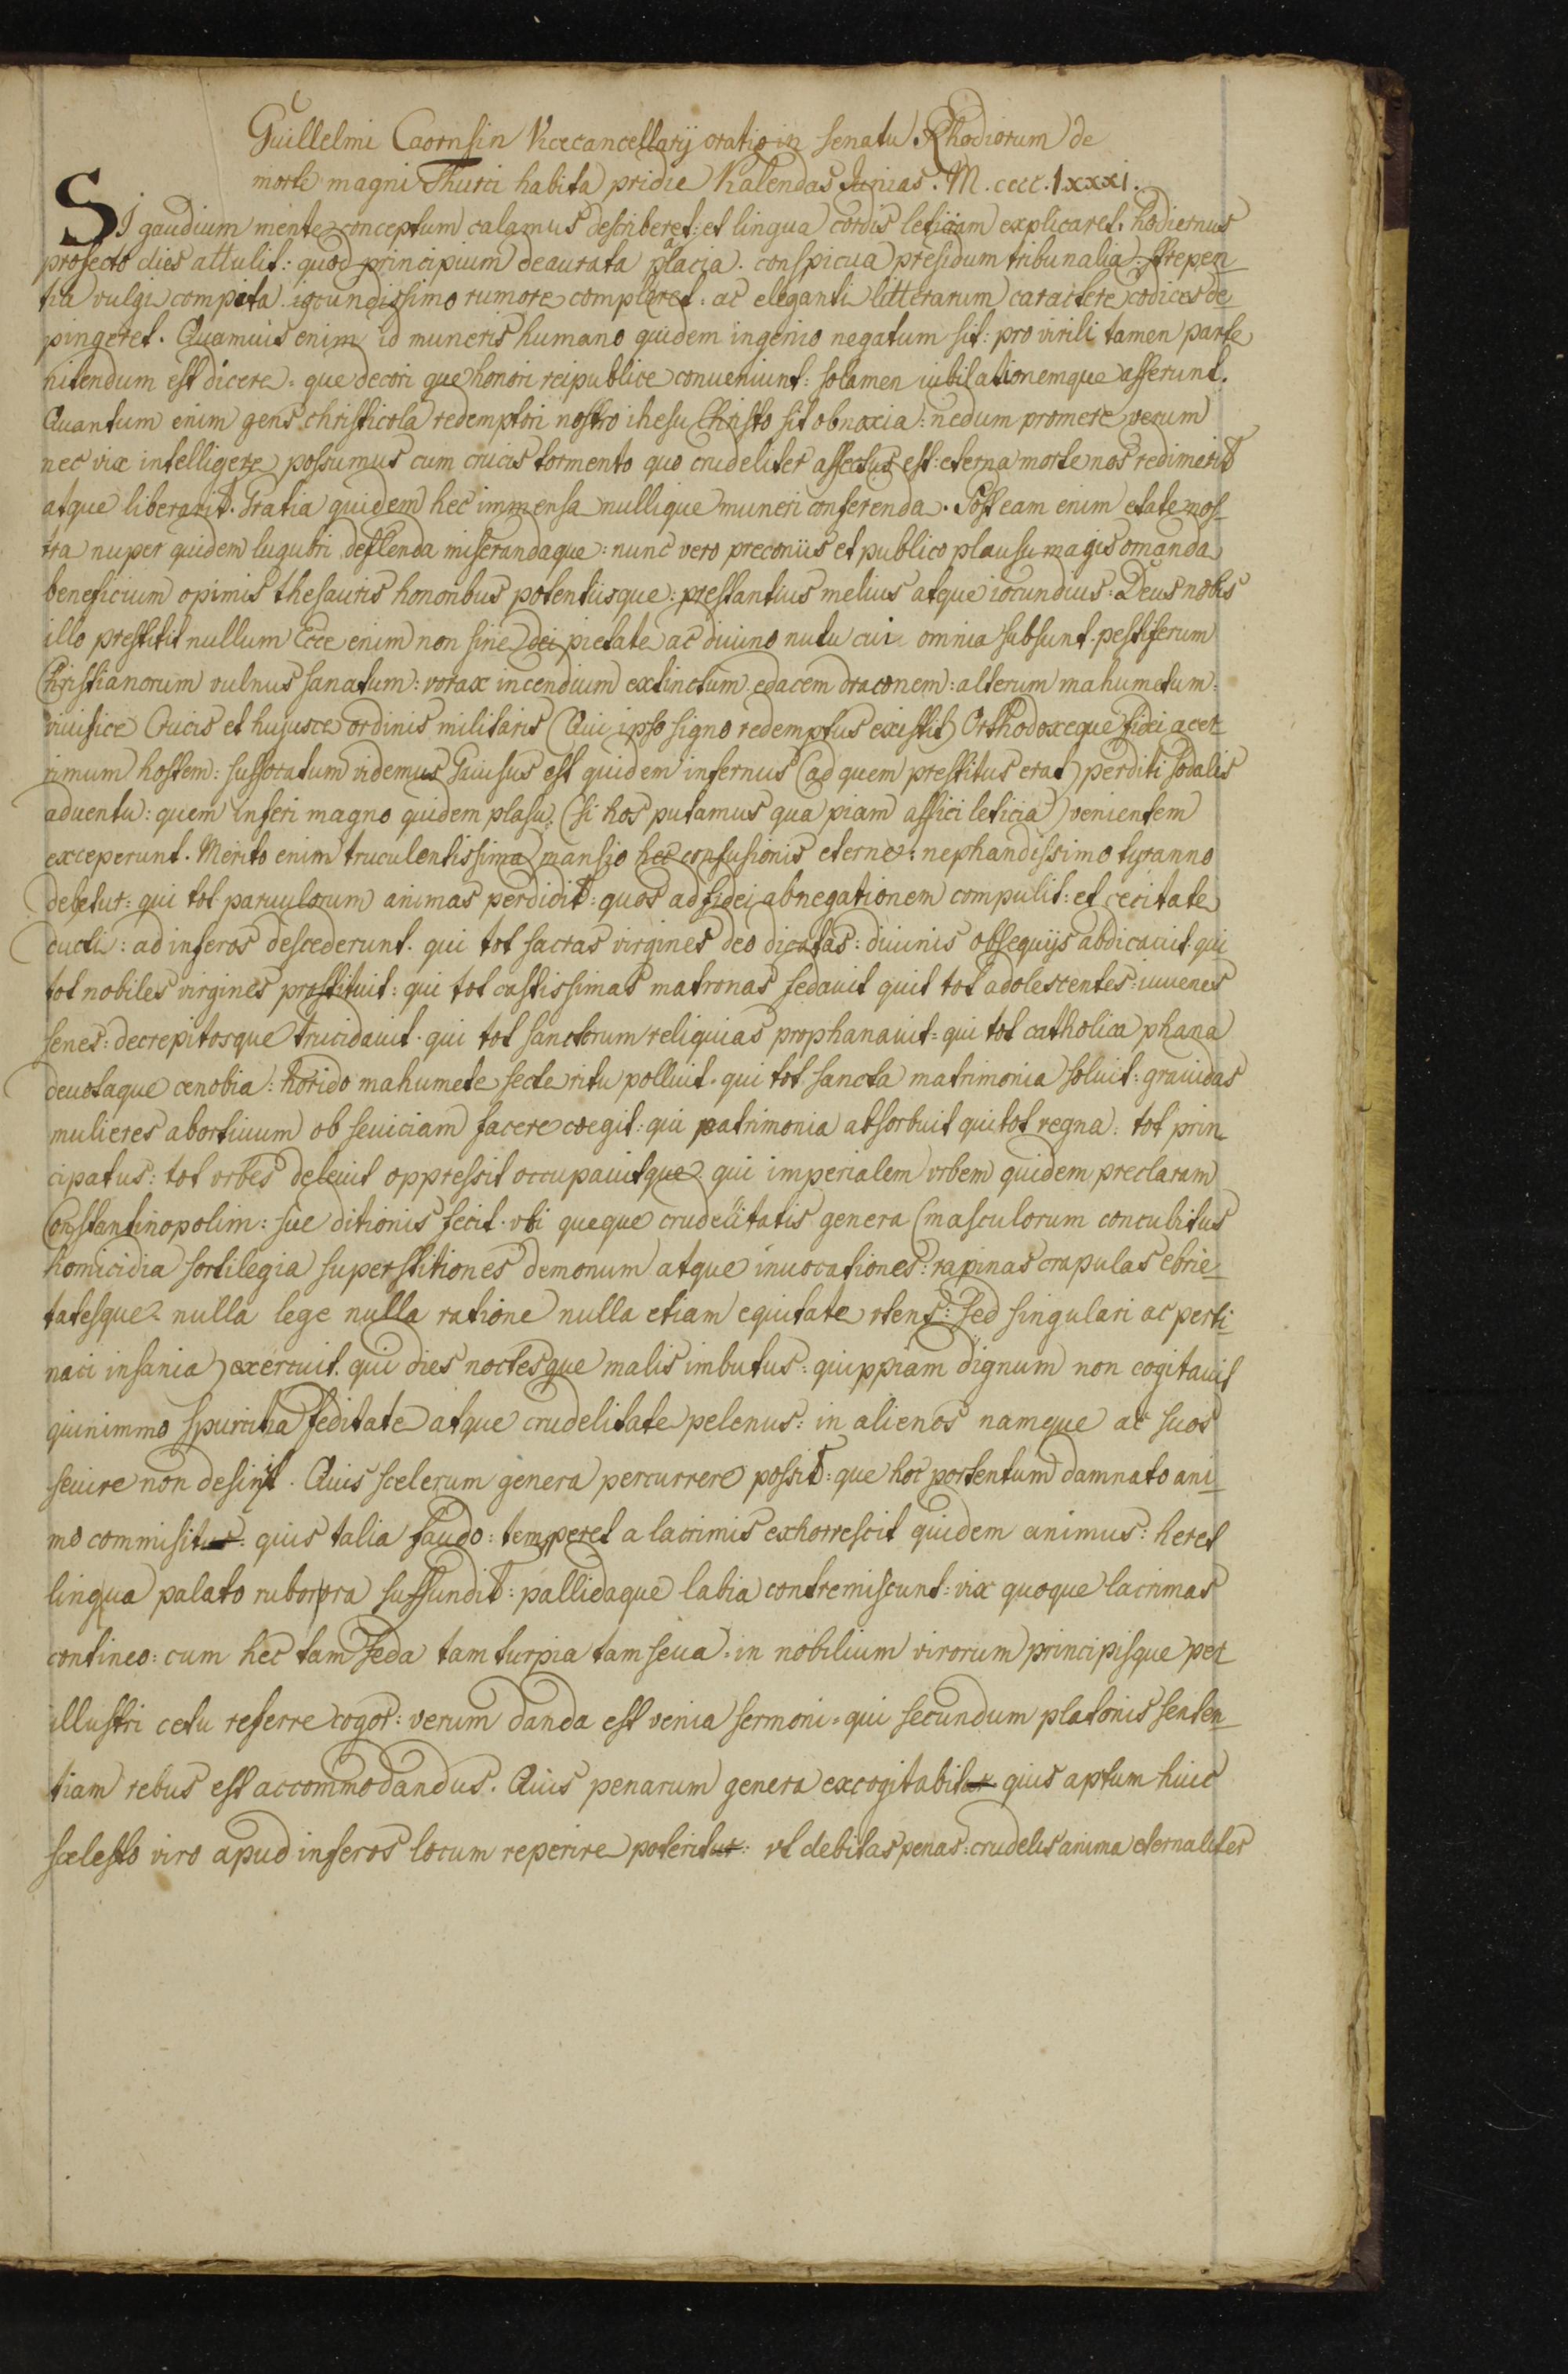 Guillelmi Caornsin Vicecancellarij oratio in senatu Rhodiorum de
morte magni Thurci habita pridie Kalendas Junias. M. cccc. lxxxi.
SI gaudium mente conceptum calamus describeret: et lingua cordis leticiam explicaret. hodiernus
profecto dies attulit: quod principium deaurata placia. conspicua presidum tribunalia. strepen-
tia vulgi compita iocundissimo rumore compleret. ac eleganti litterarum caractere codices de-
pingeret. Quamuis enim id muneris humano quidem ingenio negatum sit: pro virili tamen parte
nitendum est dicere: que decori que honori reipublice conueniunt: solamen iubilationemque afferunt.
Quantum enim gens christicola redemptori nostro ihesu Christo sit obnoxia: nedum promere verum
nec vix intelligere possumus cum crucis tormento quo crudeliter affectus est: eterna morte nos redimerit
atque liberarit. Gratia quidem hec immensa nullique muneri conferenda. Post eam enim etate nos-
tra nuper quidem lugubri deflenda miserandaque: nunc vero preconiis et publico plausu magis ornanda
beneficium opimis thesauris honoribus potentiisque: prestantius melius atque iocundius: Deus nobis
illo prestitit nullum Ecce enim non sine dei pietate ac diuino nutu cui omnia subsunt. pestiferum
Christianorum vulnus sanatum: vorax incendium extinctum edacem draconem: alterum mahumetum:
viuifice Crucis et hujusce ordinis militaris (Qui ipso signo redemptus existit) Orthodoxeque fidei acer
rimum hostem: suffocatum videmus Gauisus est quidem infernus (ad quem prestitus erat) perditi sodalis
aduentu: quem inferi magno quidem plasu: (si hos putamus qua piam affici leticia) venientem
exceperunt. Merito enim truculentissima mansio hec confusionis eterne: nephandissimo tyranno
debetur: qui tot paruulorum animas perdidit: quos ad fidei abnegationem compulit: et cecitate
ducti: ad inferos descederunt. qui tot sacras virgines deo dicatas: diuinis obsequijs abdicauit. qui
tot nobiles virgines prostituit: qui tot castissimas matronas fedavit quit tot adolescentes: iuuenes
senes: decrepitosque trucidauit. qui tot sanctorum reliquias prophanauit: qui tot catholica phana
deuotaque cenobia: horido mahumete secte ritu polluit. qui tot sancta matrimonia soluit: grauidas
mulieres abortiuum ob seuiciam facere coegit: qui patrimonia absorbuit qui tot regna: tot prin-
cipatus: tot vrbes deleuit oppressit occupauitque: qui imperialem vrbem quidem preclaram
Constantinopolim: sue ditionis fecit. vbi queque crudelitatis genera (masculorum concubitus
homicidia sortilegia superstitiones demonum atque inuocationes: rapinas crapulas ebrie-
tatesque nulla lege nulla ratione nulla etiam equitate vtens: sed singulari ac perti-
naci insania) exercuit. qui dies noctesque malis imbutus: quippiam dignum non cogitauit
quinimmo spurcitia feditate atque crudelitate pelenus: in alienos namque ac suos
seuire non desinit. Quis scelerum genera percurrere possit: que hoc portentum damnato ani-
mo commisit: quis talia faudo: temperet a lacrimis exhorrescit quidem animus: heret
lingua palato rubor ora suffundit: pallidaque labia contremiscunt: vix quoque lacrimas
contineo: cum hec tam feda tam turpia tam seua: in nobilium virorum principisque per
illustri cetu referre cogor: verum danda est venia sermoni: qui secundum platonis senten-
tiam rebus est accommodandus. Quis penarum genera excogitabit quis aptum huic
scelesto viro apud inferos locum reperire poterit: vt debitas penas: crudelis anima eternaliter